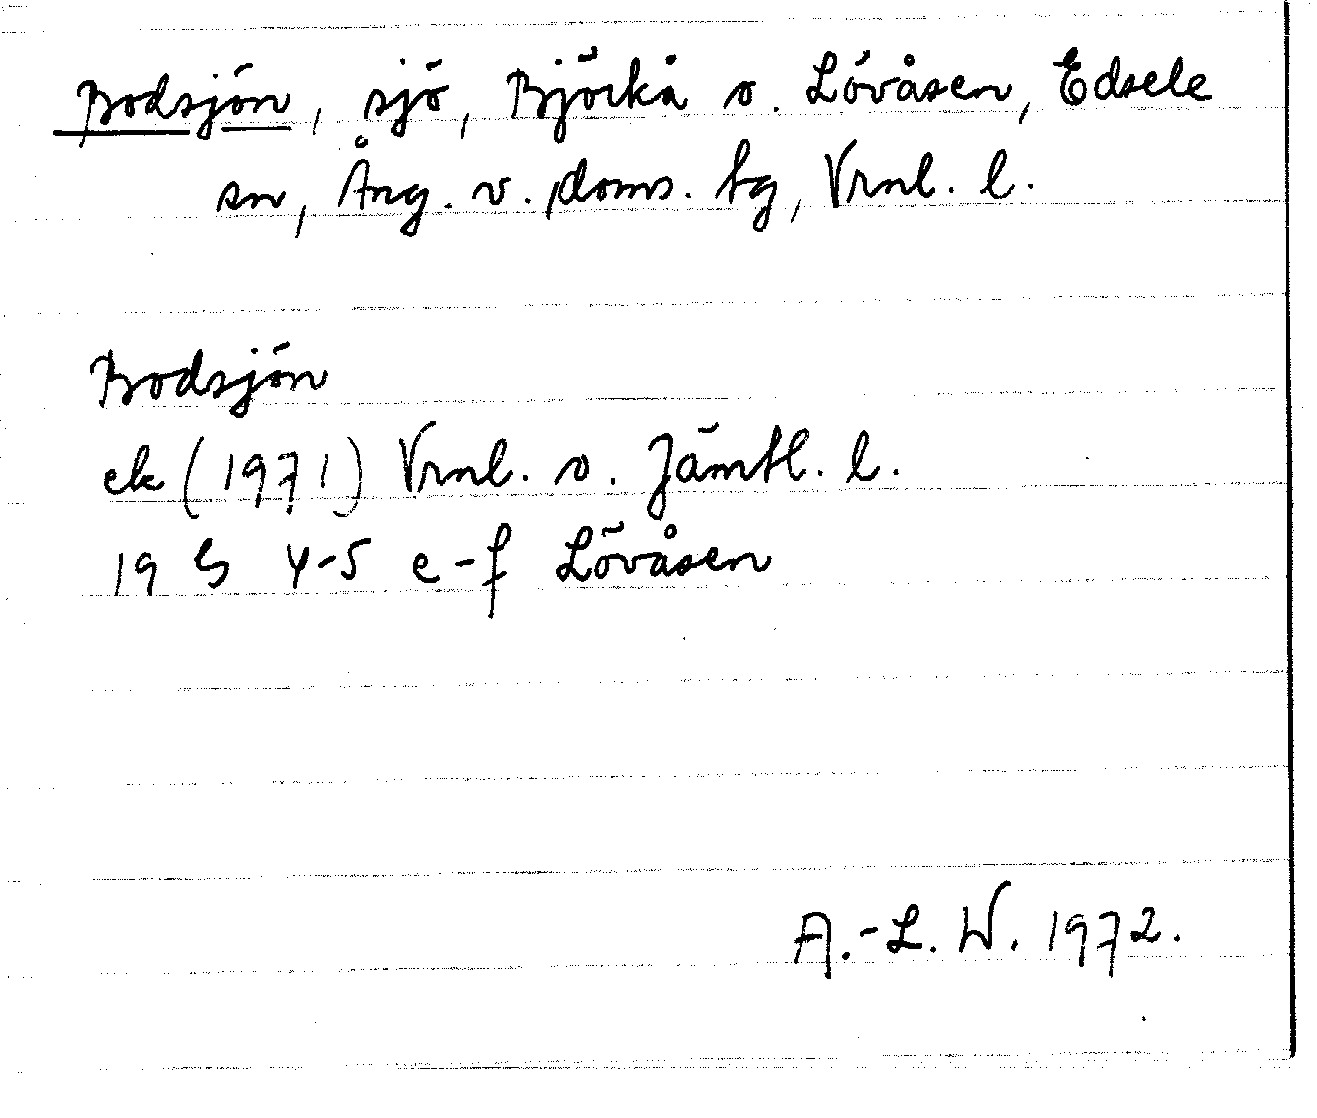 Bodsjön, sjö, Björkå o. Lövåsen, Edsele
sn, Ång. v. doms. tg, Vrnl. l.
Bodsjön
ek (1971) Vrnl. o. Jämtl. l.
19 G 4-5 e-f Lövåsen
A.-L. W. 1972.